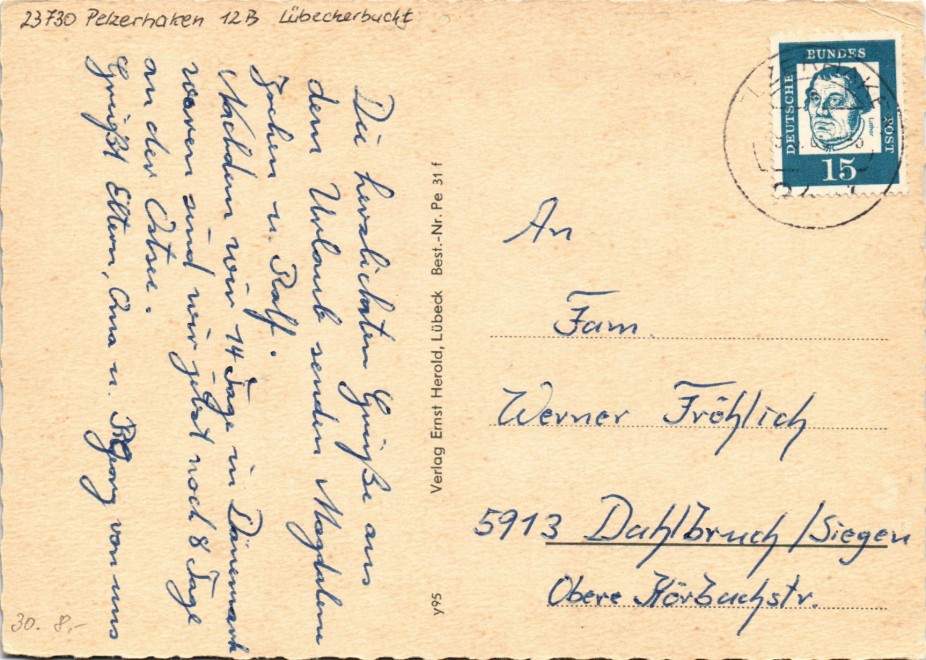 23730 Pelzerhaken 12B Lübeckerbucht
Die herzlichsten Grüße aus
dem Urlaub senden Magdalena
Jochen u. Ralf.
Nachdem wir 14 Tage in Dänemark
waren sind wir jetzt noch 8 Tage
an der Ostsee.
Grüßt Eltern, Oma u. Georg von uns
Verlag Ernst Herold, Lübeck Best.-Nr. Pe 31 f
y95
DEUTSCHE
BUNDES
POST
Luther
15
An
Fam.
Werner Fröhlich
5913 Dahlbruch/Siegen
Obere Hörbachstr.
30. 8,-